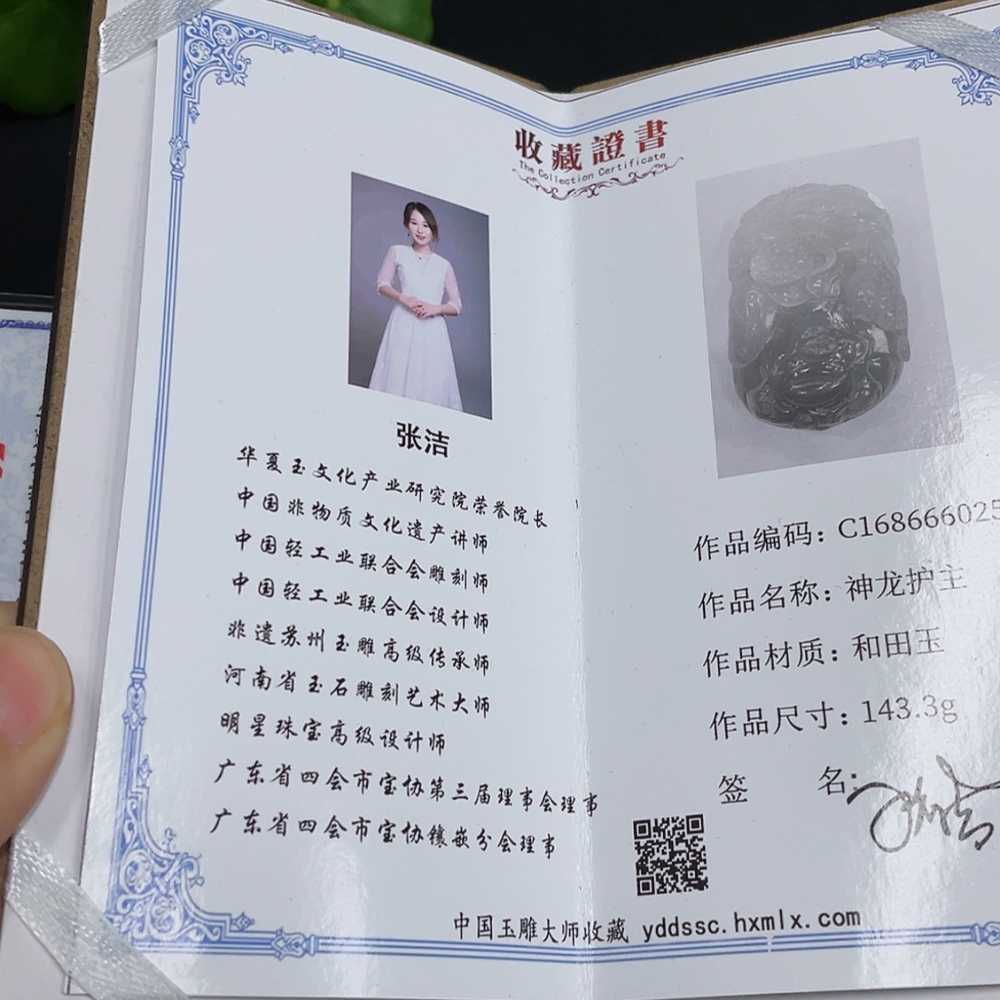 收藏證書
The Collection Certificate
张洁
华夏玉文化产业研究院荣誉院长
中国非物质文化遗产讲师
中国轻工业联合会雕刻师
中国轻工业联合会设计师
非遗苏州玉雕高级传承师
河南省玉石雕刻艺术大师
明星珠宝高级设计师
广东省四会市宝协第三届理事会理事
广东省四会市宝协镶嵌分会理事
作品编码：C168666025
作品名称：神龙护主
作品材质：和田玉
作品尺寸：143.3g
签 名：
中国玉雕大师收藏 yddssc.hxmlx.com